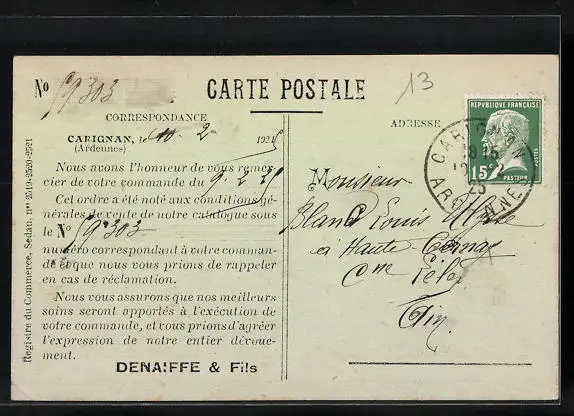 13
No 99303
CARTE POSTALE
CORRESPONDANCE
ADRESSE
CARIGNAN, le 10. 2 1925
(Ardennes)
Nous avons l'honneur de vous remer-
cier de votre commande du 9.2.25
Cet ordre a été noté aux conditions gé-
nérales de vente de notre catalogue sous
le No 99303
numéro correspondant à votre comman-
de et que nous vous prions de rappeler
en cas de réclamation.
Nous vous assurons que nos meilleurs
soins seront apportés à l'exécution de
votre commande, et vous prions d'agréer
l'expression de notre entier dévoue-
ment.
DENAIFFE & Fils
Registre du Commerce, Sedan, nos 2519-2520-2521
RÉPUBLIQUE FRANÇAISE
15c
POSTES
PASTEUR
CARIGNAN
25
ARDENNES
Monsieur
Louis
à Haute
Cne
Ain